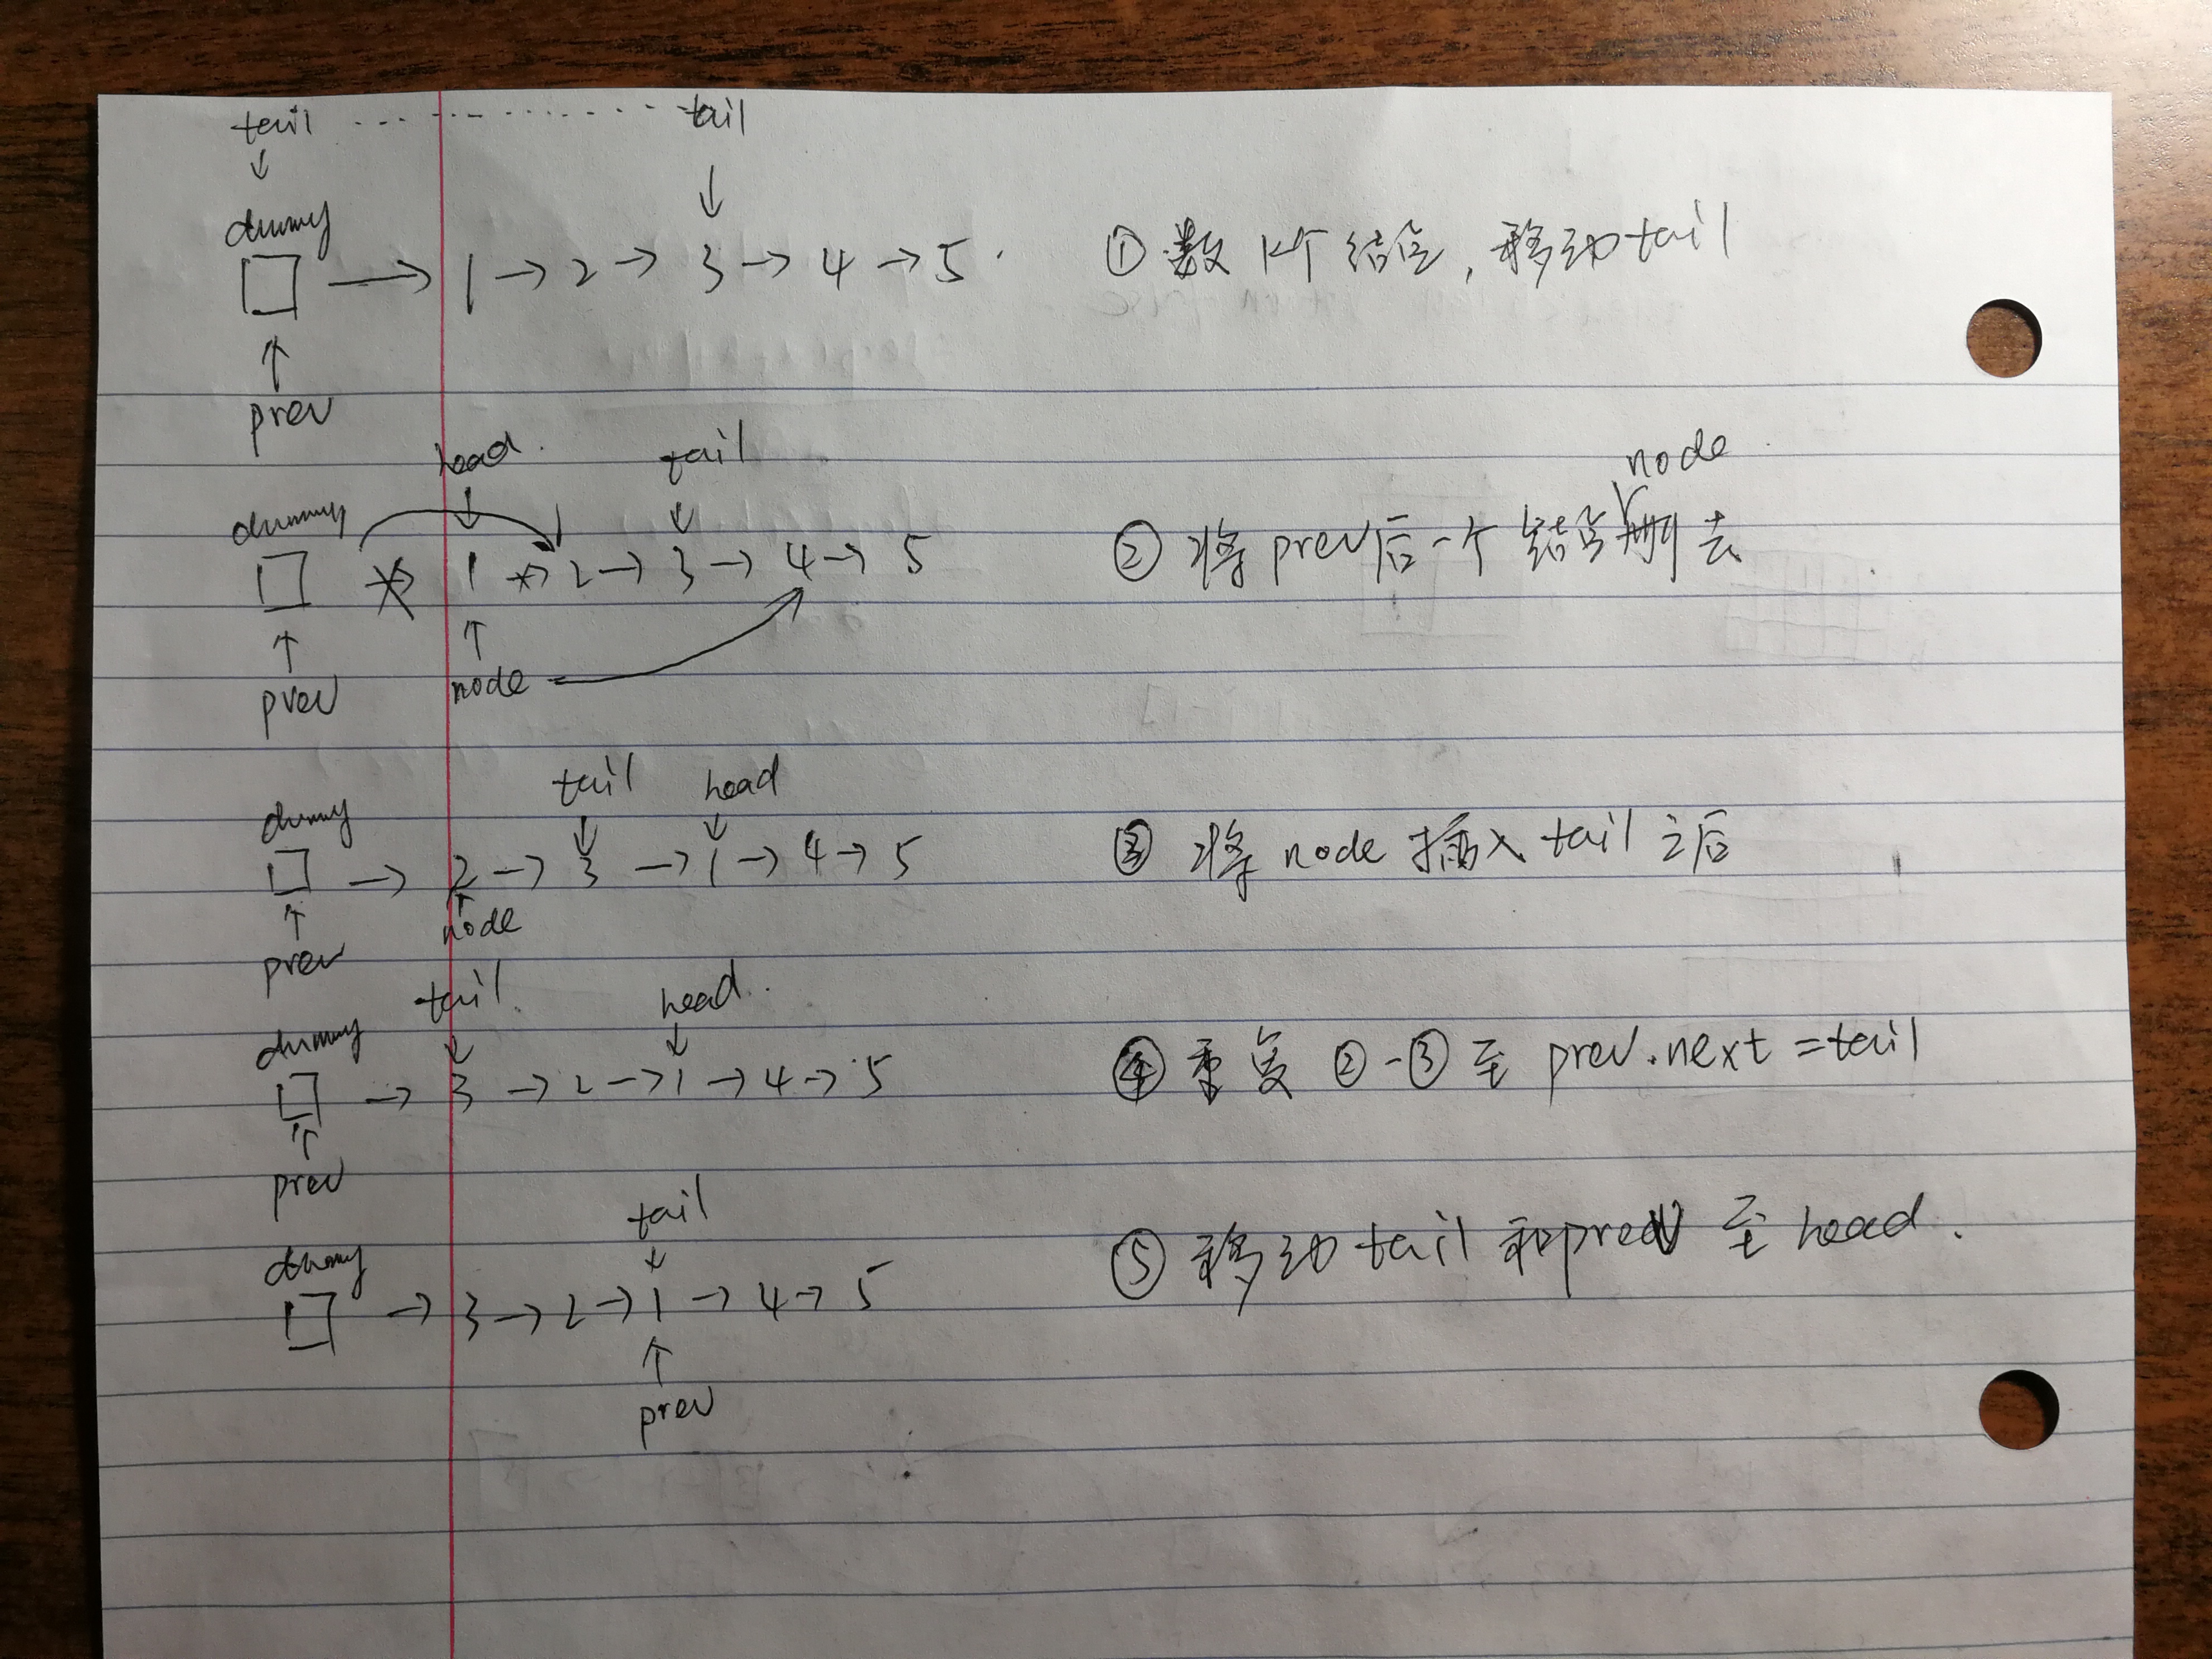 tail ............ tail
↓ ↓
dummy
□ → 1 → 2 → 3 → 4 → 5 ① 数 k个 结点, 移动 tail
↑
prev
head tail
↓ ↓
dummy node
□ → 1 → 2 → 3 → 4 → 5 ② 将 prev后一个 结点 删去
↑ ↑
prev node
tail head
dummy ↓ ↓
□ → 2 → 3 → 1 → 4 → 5 ③ 将 node 插入 tail 之后
↑ ↑
prev node
tail head
dummy ↓ ↓
□ → 3 → 2 → 1 → 4 → 5 ④ 重复 ②-③ 至 prev.next = tail
↑
prev
tail
dummy ↓
□ → 3 → 2 → 1 → 4 → 5 ⑤ 移动 tail 和prev 至 head.
↑
prev